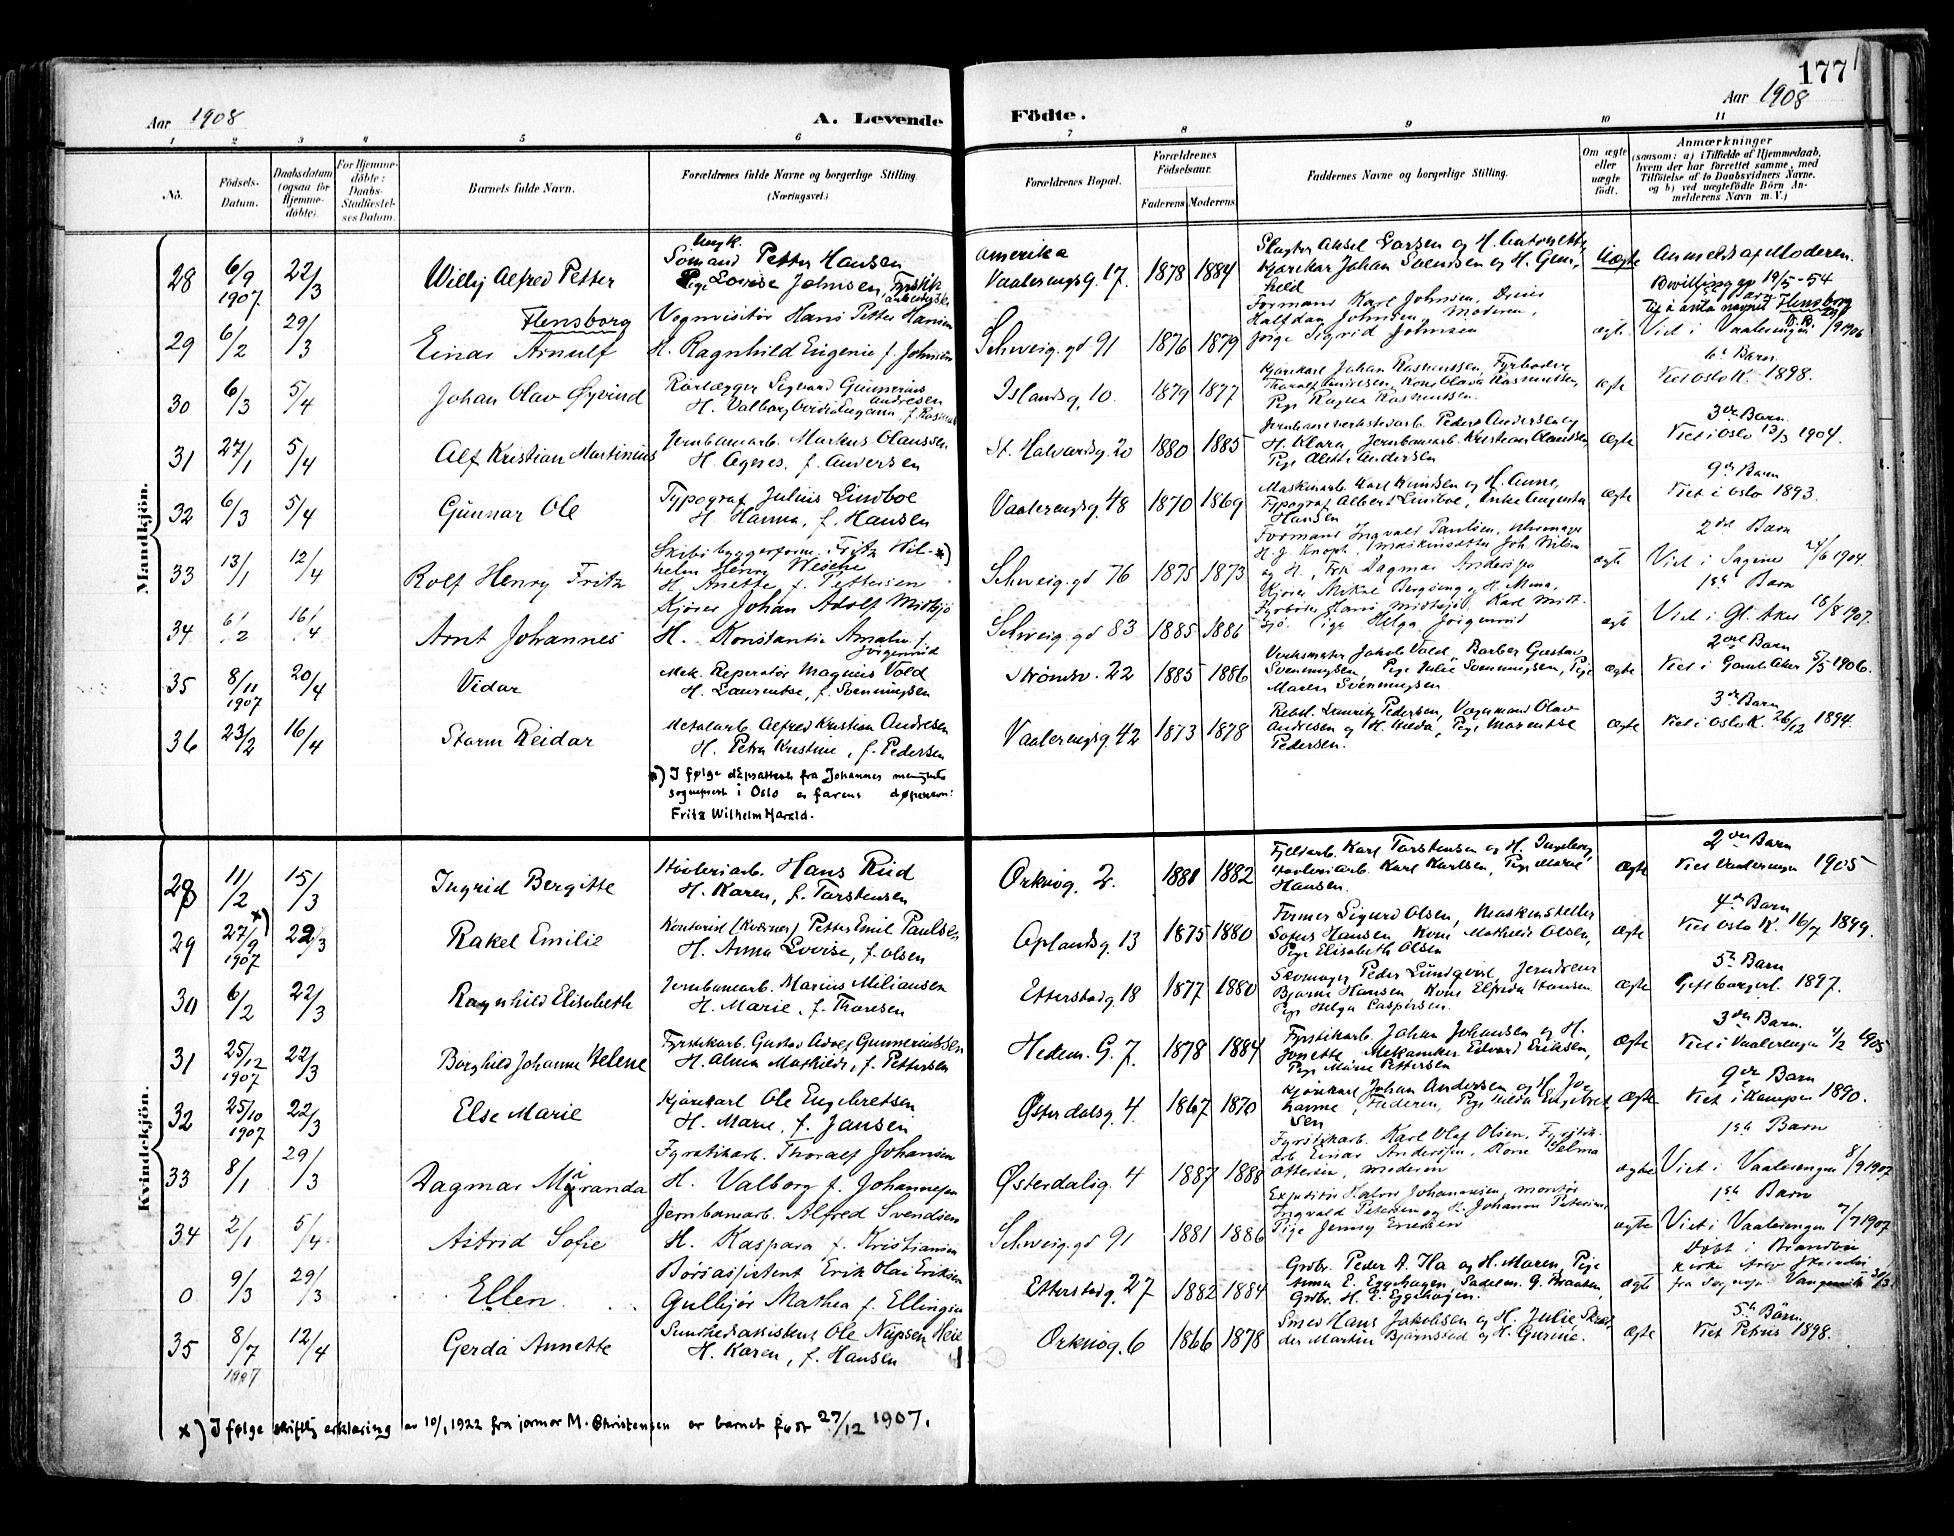 177
Aar 1908
A. Levende Födte.
Aar 1908
1 2 3 4 5 6 7 8 9 10 11
No.
Födsels-Datum.
Daabsdatum (ogsaa for Hjemme-döbte).
For Hjemme-döbte: Daabs-Stadfæstel-ses Datum.
Barnets fulde Navn.
Forældrenes fulde Navne og borgerlige Stilling. (Næringsvei.)
Forældrenes Bopæl.
Forældrenes Födselsaar.
Faderens Moderens
Faddernes Navne og borgerlige Stilling.
Om ægte eller uægte födt.
Anmærkninger
(saasom: a) i Tilfælde af Hjemmedaab,
hvem der har forrettet samme, med
Tilföielse af to Daabsvidners Navne,
og b) ved uægtefödte Börn An-
melderens Navn m. V.)
Mandkjön.
28 6/9 1907 22/3 Willy Alfred Petter
Ungk. Sömand Petter Hansen
Pige Lovise Johnsen, Fyrstik
Amerika
Vaalerengsg. 17. 1878 1884
Slagter Aksel Larsen og H.
Kjørekar Johan Svendsen og H. Gun-
hild
Uægte Anmeldt af Moderen.
Bevilling gp 19/5-54
til å anta navnet Flensborg
29 6/2 29/3 Flensborg
Einar Arnulf
Vognvisitør Hans Petter Hansen
H. Ragnhild Eugenie f. Johnsen
Schweig.gd 91 1876 1879
Formand Karl Johnsen,
Halfdan Johnsen, Moderen,
Pige Sigrid Johnsen
ægte Viet i Vaalerengen 1906
30 6/3 5/4 Johan Olav Øyvind
Rørlægger Sigvard Gunnerius
Andresen
H. Valborg
Islandsg. 10. 1879 1877
Kjørekarl Johan Rasmussen, Fyrbøder
Andresen, Kone Olava Rasmussen,
Pige Ragna Rasmussen.
ægte 6te Barn.
Viet Oslo K. 1898.
31 27/1 5/4 Alf Kristian Martinius
Jernbanearb. Markus Olaussen
H. Agnes, f. Andersen
St. Halvardsg. 20 1880 1885
Jernbaneverkstedarb. Peder Andersen og
H. Klara, Jernbanearb. Kristian Olaussen
Pige Aleth Andersen
ægte 3die Barn.
Viet i Oslo 13/3 1904.
32 6/3 5/4 Gunnar Ole
Typograf Julius Lindboe
H. Hanna, f. Hansen
Vaalerengsg. 48 1870 1869
Maskinarb. Karl Knudsen og H. Anne,
Typograf Albert Lindboe, Enke Augusta
Hansen
ægte 9de Barn
Viet i Oslo 1893.
33 13/1 12/4 Rolf Henry Fritz
Skibsbyggerform. Fritz Wil- x)
helm Henry Wesche
H. Anette f. Pettersen
Schweig.gd 76 1875 1873
Formand Ingvald Paulsen, Uhrmager
H. J. Knoph, Maskinsetter Joh. Nilsen
og H., Frk Dagmar Andersen
ægte 2det Barn
Viet i Sagene 24/6 1904.
34 6/2 16/4 Arnt Johannes
Kjører Johan Adolf Midtsjø
H. Konstantia Amalie f.
Jörgenrud
Schweig.gd 83 1885 1886
Kjører Mikal Bergseng og H. Mina,
Fyrbøter Hans Midtsjø, Karl Midt-
sjø, Pige Helga Jörgenrud
ægte 1ste Barn
Viet i Gl. Aker 18/8 1907.
35 8/11 1907 20/4 Vidar
Mek. Reperatør Magnus Vold
H. Laurentse, f. Svenningsen
Strømsv. 22 1885 1886
Verksmster Jakob Vold, Barber Gustav
Svenningsen Pige Julie Svenningsen, Pige
Maren Svenningsen
ægte 2det Barn
Viet i Gamle Aker 5/5 1906.
36 23/2 16/4 Storm Reidar
Metalarb. Alfred Kristian Andresen
H. Petra Kristine, f. Pedersen
Vaalerengsg. 42 1873 1878
Rebsl. Lauritz Pedersen, Vognmand Olav
Andresen og H. Hilda, Pige Marentse
Pedersen.
ægte 3die Barn
Viet i Oslo K. 26/12 1894.
x) I følge dåpsattest fra Johannes menighets
sogneprest i Oslo er farens døpenavn:
Fritz Wilhelm Harald.
Kvindekjön.
28 11/2 15/3 Ingrid Bergitte
Høvleriarb. Hans Rud
H. Karen, f. Torstensen
Orknøg. 2. 1881 1882
Fjeldarb. Karl Torstensen og H. Ingeborg,
Høvleriarb. Karl Karlsen, Pige Marie
Hansen.
ægte 2det Barn
Viet Vaalerengen 1905
29 27/9 x) 1907 22/3 Rakel Emilie
Kontorist (Kværner) Petter Emil Paulsen
H. Anna Lovise, f. Olsen
Oplandsg. 13 1875 1880
Former Sigurd Olsen, Maskinsteller
Sofus Hansen Kone Mathilde Olsen,
Pige Elisabeth Olsen
ægte 4de Barn
Viet Oslo K. 16/7 1899.
30 6/2 22/3 Ragnhild Elisabeth
Jernbanearb. Marius Miliansen
H. Marie, f. Thoresen
Etterstadg. 18 1877 1880
Skomager Peder Lundqvist, Jerndreier
Bjarne Hansen Kone Elfrida Hansen
Pige Helga Caspersen.
ægte 5te Barn
Gift borgerl. 1897.
31 25/12 1907 22/3 Borghild Johanne Helene
Fyrstikarb. Gustav Adolf Gunneriussen
H. Alma Mathilde, f. Pettersen
Hedem. G. 7. 1878 1884
Fyrstikarb. Johan Johansen og H.
Josette, Mekaniker Edvard Eriksen,
Pige Marie Pettersen
ægte 3die Barn.
Viet i Vaalerengen 4/2 1905
32 25/10 1907 22/3 Else Marie
Kjørekarl Ole Engebretsen
H. Marie, f. Jansen
Østerdalsg. 4. 1867 1870
Kjørekarl Johan Andersen og H. Jo-
hanne, Faderen, Pige Hilda Engebret-
sen
ægte 9de Barn
Viet i Kampen 1890.
33 8/1 29/3 Dagmar Miranda
Fyrstikarb. Thoralf Johansen
H. Valborg f. Johannesen
Østerdalsg. 4 1887 1888
Fyrstikarb. Karl Olaf Olsen, Fyrstik-
arb Einar Andersen, Kone Selma
Ottersen, Moderen
ægte 1ste Barn
Viet i Vaalerengen 8/9 1907
34 2/1 5/4 Astrid Sofie
Jernbanearb. Alfred Svendsen
H. Kaspara f. Kristiansen
Schweig.gd 91 1881 1886
Expeditør Halvor Johannesen, Montør
Ingvald Petersen og H. Johanna Petersen
Pige Jenny
ægte 1ste Barn
Viet i Vaalerengen 7/7 1907
0 9/3 29/3 Ellen
Børsassistent Erik Olai Eriksen
Gulbjør Mathea f. Ellingsen
Etterstadg. 27 1882 1884
Grdbr. Peder A. Ha og H. Maren, Pige
Anna E. Eggehagen, Sadelm. G. Braaten,
Grdbr. H. E. Eggehagen.
ægte Døbt i Brandbu
kirke
35 8/7 1907 12/4 Gerda Annette
Sundhedsassistent Ole Nilssen Heie
H. Karen, f. Hansen
Orknøg. 6 1866 1878
Smed Hans Jakobsen og H. Julie, Skræd-
der Martin Bjørnstad og H. Gurine.
ægte 5te Barn.
Viet Petrus 1898.
x) I følge skriftlig erklæring av 10/1 1922 fra jormor M. Christensen er barnet født 27/12 1907.